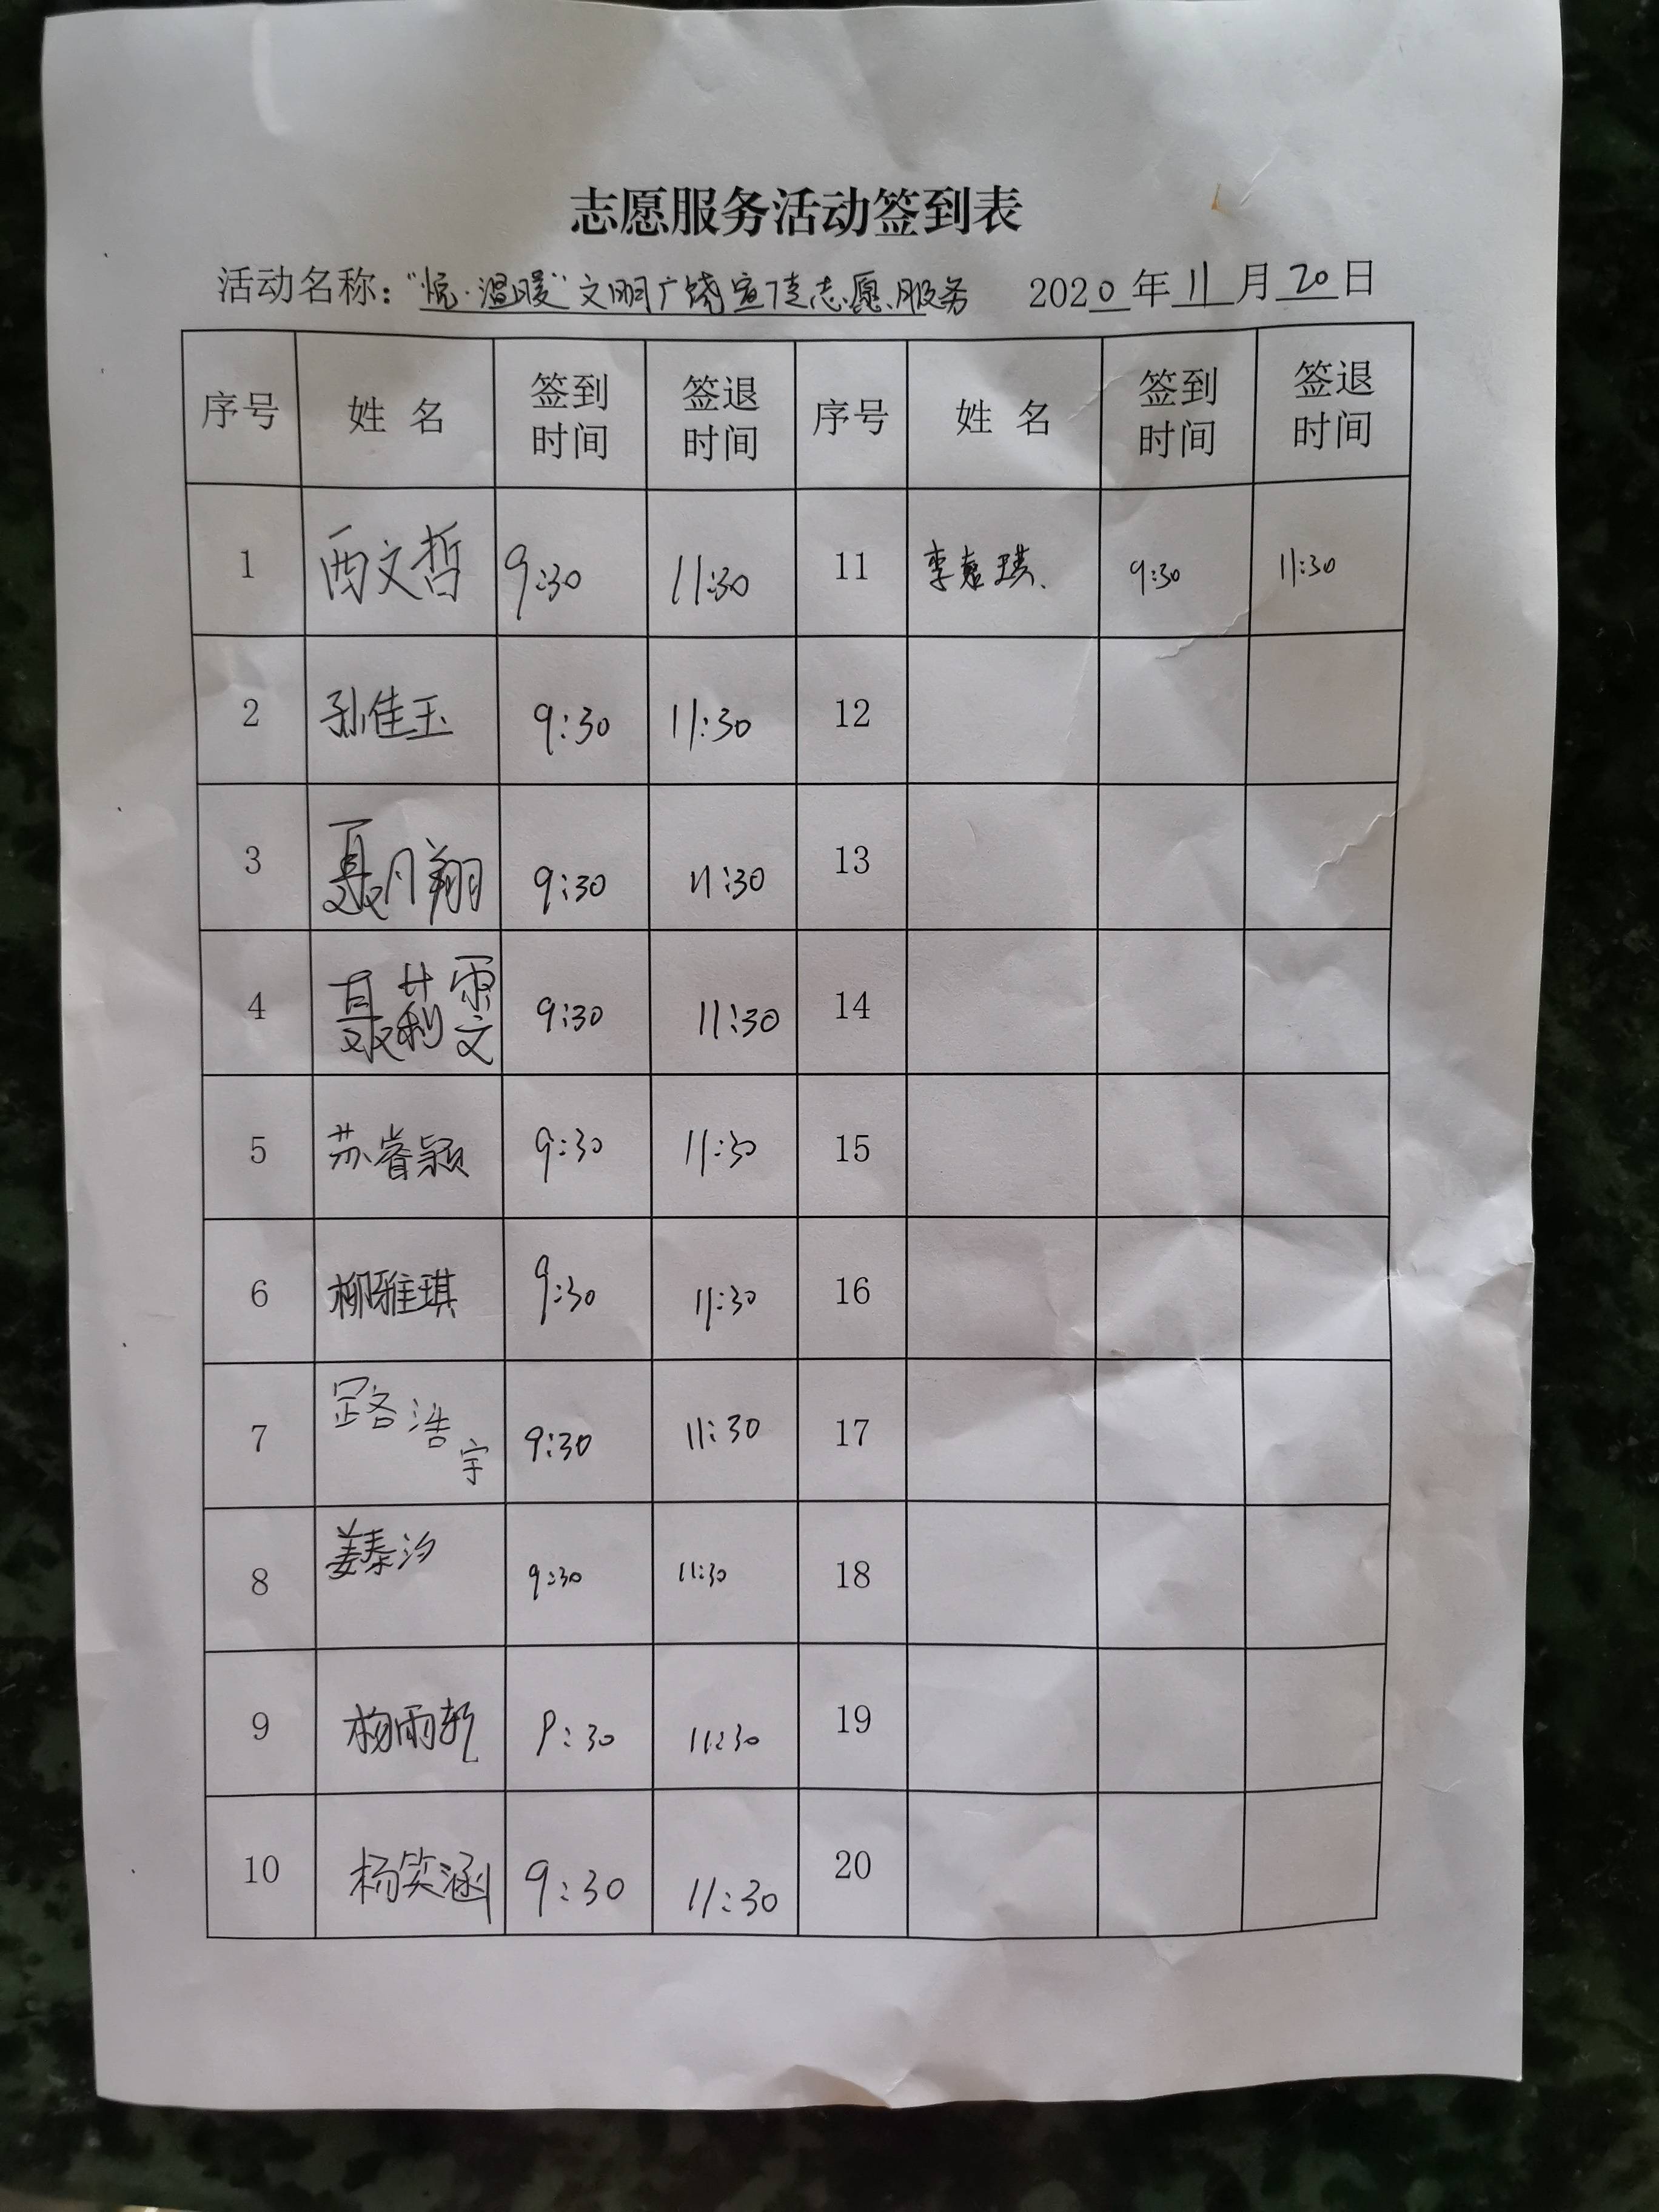 志愿服务活动签到表
活动名称："悦·温暖"文明广饶宣传志愿服务 2020年11月20日
序号 姓名 签到时间 签退时间 序号 姓名 签到时间 签退时间
1 西文哲 9:30 11:30 11 李惠琪 9:30 11:30
2 孙佳玉 9:30 11:30 12
3 聂月翔 9:30 11:30 13
4 聂莉雯 9:30 11:30 14
5 苏睿颖 9:30 11:30 15
6 柳雅琪 9:30 11:30 16
7 路浩宇 9:30 11:30 17
8 姜秦汐 9:30 11:30 18
9 杨雨轩 9:30 11:30 19
10 杨笑涵 9:30 11:30 20